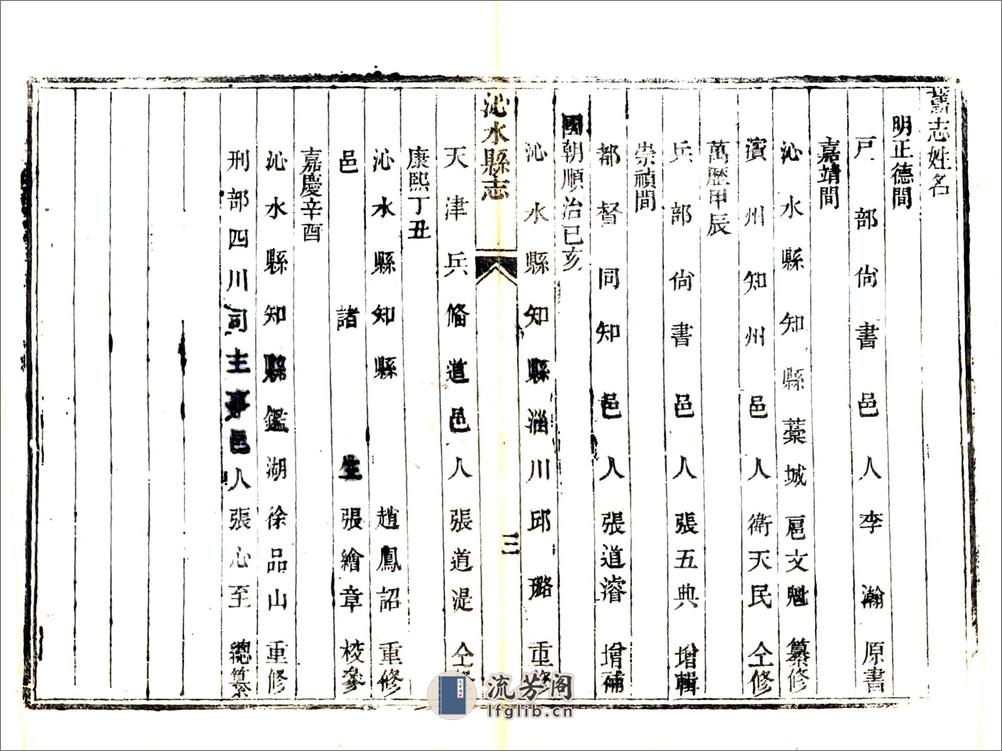 舊志姓名
明正德間
戸部尙書邑人李瀚原書
嘉靖間
沁水縣知縣藁城扈文魁纂修
賓州知州邑人衛天民仝修
萬歷甲辰
兵部尙書邑人張五典增輯
崇禎間
都督同知邑人張道濬增補
國朝順治己亥
沁水縣知縣淄川邱璐重修
沁水縣志
三
天津兵偹道邑人張道湜仝修
康熙丁丑
沁水縣知縣趙鳳詔重修
邑諸生張繪章校參
嘉慶辛酉
沁水縣知縣鑑湖徐品山重修
刑部四川司主事邑人張心至總纂
流芳阁
lfglib.cn